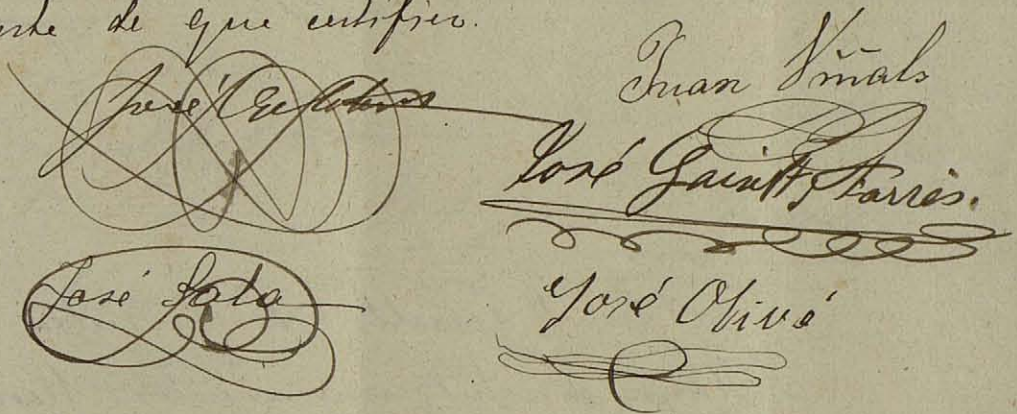 de que certifico.
José
Juan Viñals
José Farrés.
José Sala
José Olivé